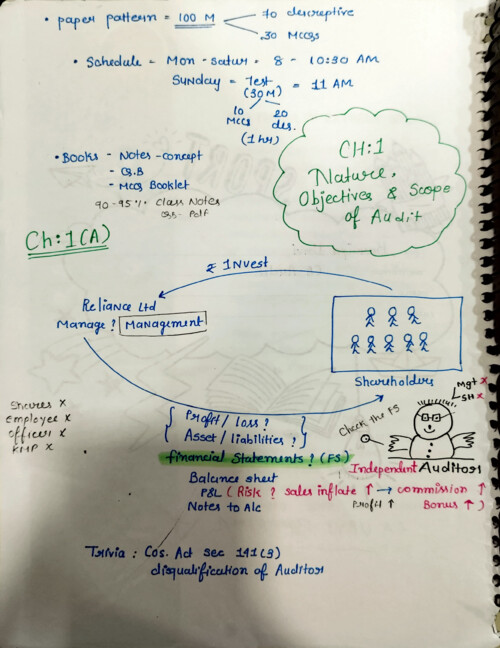 • paper pattern = 100 M
70 descreptive
30 MCQs
• Schedule - Mon - satur - 8 - 10:30 AM
Sunday = Test = 11 AM
(30M)
10 MCQs
20 des.
(1 hr)
• Books - Notes - concept
- Qs.B
- MCQs Booklet
90 - 95 % class Notes
CH:1
Nature,
Objectives & Scope
of Audit
Ch:1(A)
₹ Invest
Reliance Ltd
Manage? Management
Shareholders
Shares x
Employee x
Officer x
KMP x
Profit / loss ?
Asset / liabilities ?
financial Statements ? (FS)
Check the FS
Mgt x
SH x
Independent Auditor
Balance sheet
P&L ( Risk ? sales inflate ↑ → commission ↑
Profit ↑ Bonus ↑ )
Notes to A/c
Trivia : Cos. Act sec 141(3)
disqualification of Auditor